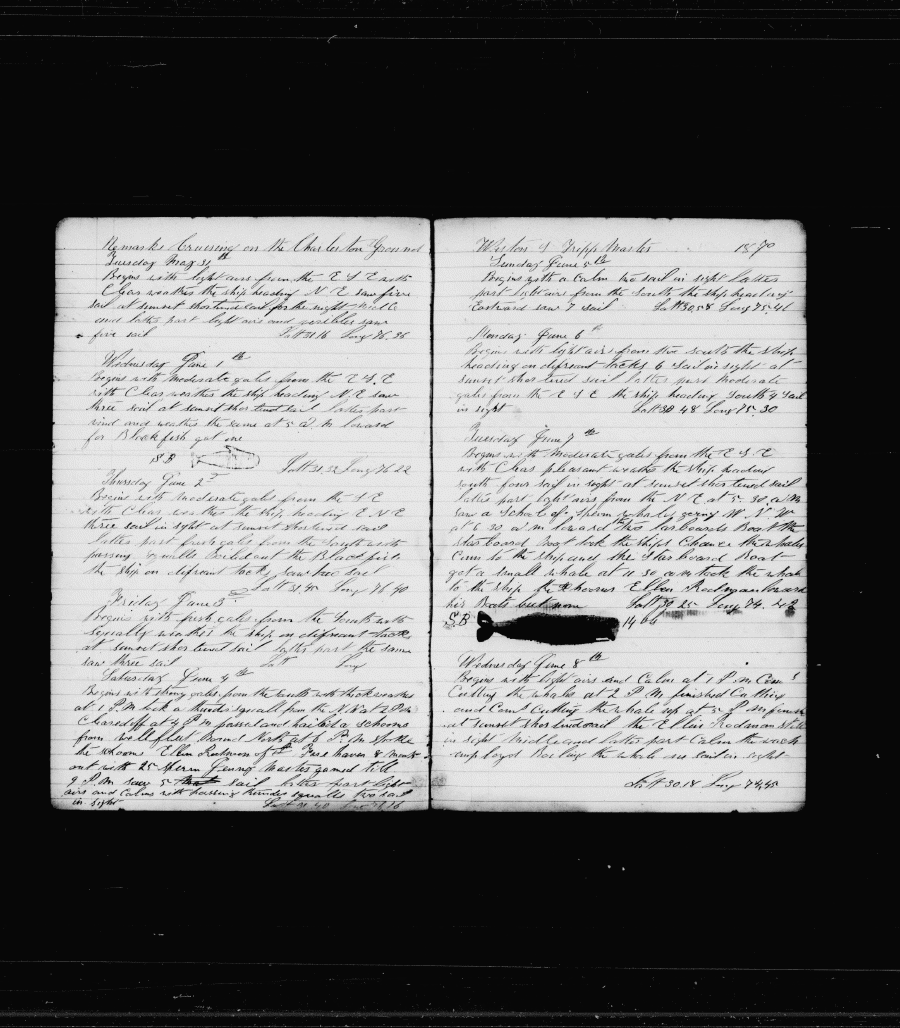 Remarks Cruising on the Charleston Ground
Tuesday May 31th
Begins with light airs from the E S E with
Clear weather the ship heading N. E. saw five
sail at sunset shortened sail for the night
and latter part light airs and saw
five sail Latt 31.16 Long 76.36
Wednesday June 1th
Begins with moderate gales from the E S. E
with Clear weather the ship heading N. E saw
three sail at sunset shortened sail latter part
wind and weather the same at 5 A. M lowerd
for Blackfish got one
S B Latt 31.32 Long 76.22
Thursday June 2
Begins with moderate gales from the S E
with Clear weather the ship heading E N E
three sail in sight at sunset shortened sail
latter part fresh gales from the South with
passing squalls boiled out the Blackfish
the ship on difreant tacks saw two sail
Latt 31.45 Long 76 40
Friday June 3
Begins with fresh gales from the South with
squally weather the ship on difreant tacks
at sunset shortened sail latter part the same
saw three sail Latt Long
Saturday June 4th
Begins with strong gales from the South with thick weather
at 1 P.M. took a squall from the N.W at 2 P.M
Cleared off at 4 P M passed and hailed a schooner
from bound North at 6 P. M. spoke
the schoner Ellen Rodman of Fare haven 8 months
out with 25 sperm Jenny Master gamed till
9 P.M. saw 5 sail latter part light
airs and calms with passing thunder squalls two sail
in sight Latt 31 40
Weston J Tripp Master 1870
Sunday June 5th
Begins with a Calm two sail in sight latter
part light airs from the South the ship heading
Eastward saw 7 sail Latt 30,58 Long 75-41
Monday June 6th
Begins with light airs from the south the ship
heading on difreant tacks 6 sail in sight at
sunset shortened sail latter part Moderate
gales from the E S E the ship heading South 4 sail
in sight Latt 30 48 Long 75. 30
Tuesday June 7th
Begins with Moderate gales from the E S E
with Clear pleasant weather the ship heading
South four sail in sight at sunset shortened sail
latter part light airs from the N E at 5-30 A M
Saw a School of Sperm whales going W. N W
at 6 30 a m lowerd the larboard Boat the
starboard boat took the ships Chance the whales
Cam to the ship and the Starboard Boat
got a small whale at 11 30 a m took the whale
to the ship the schoner Ellen Rodman lowerd
his Boats but none Latt 30 25 Long 74.
S B
Wednesday June 8th
Begins with light airs and Calm at 1 P.M Com'd
Cutting the whale at 2 P. M finished Cutting
and Com'd Cutting the whale up at 5 P M finish
at sunset shortened sail the Ellen Rodman still
in sight Middle and latter part Calm the watch
employed Boiling the whale six sail in sight
Latt 30.18 Long 74,45